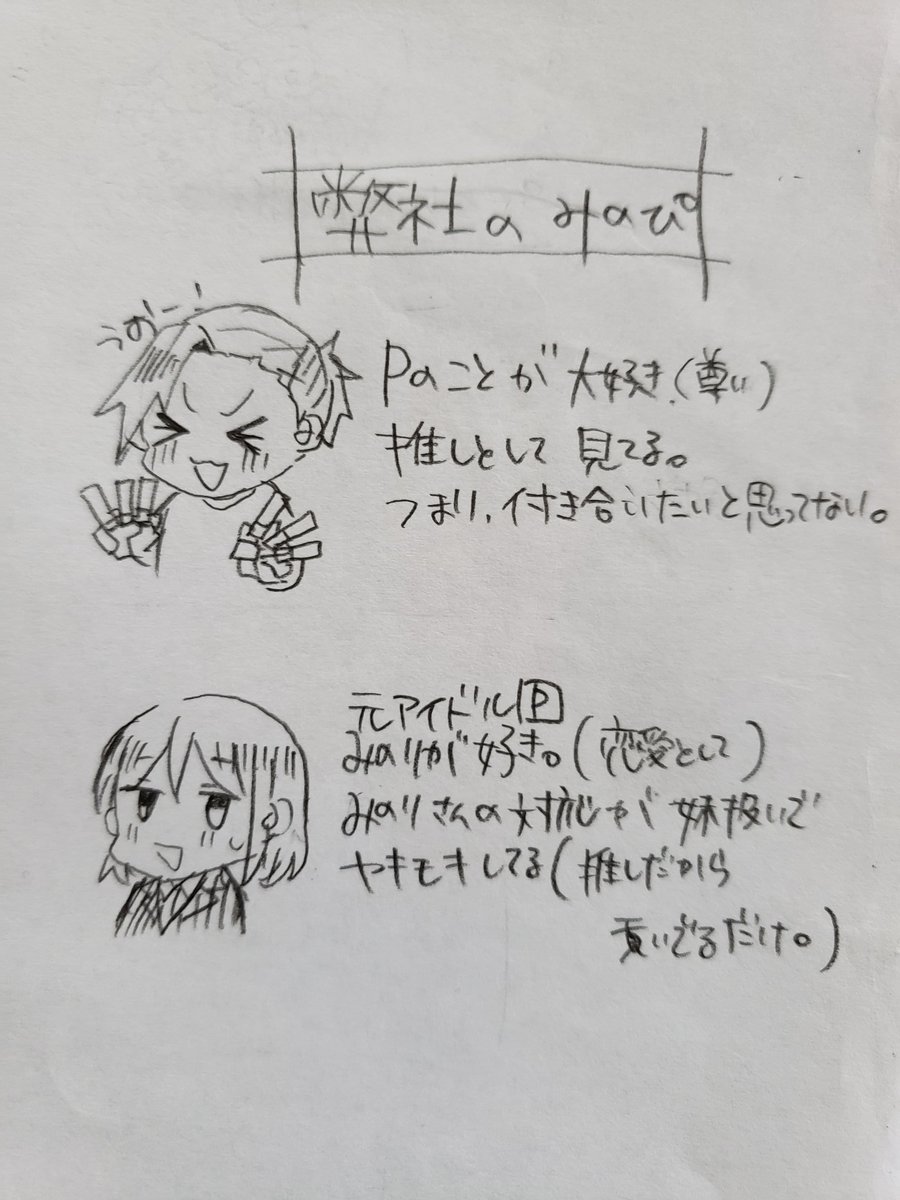 弊社のみのぴ
うおーー!
Pのことが大好き.(尊い)
推しとして見てる。
つまり、付き合いたいと思ってない。
元アイドルP
みのりが好き。(恋愛として)
みのりさんの対応が妹扱いで
ヤキモキしてる(推しだから
貢いでるだけ。)